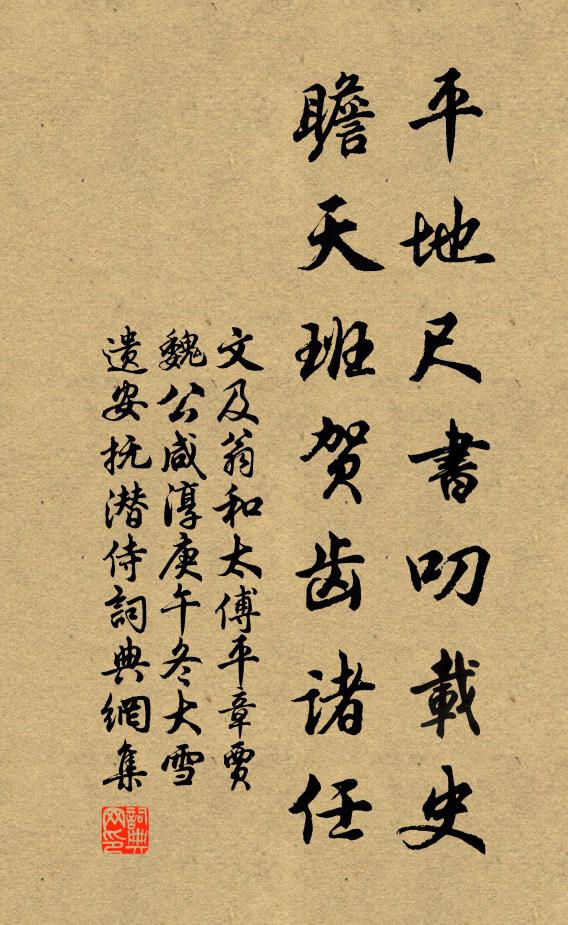 平地尺書叨載史
瞻天班贺齿诸任
文及翁和太傅平章贾
魏公咸淳庚午冬大雪
遗安抚潜侍詞典網集
詞典网印